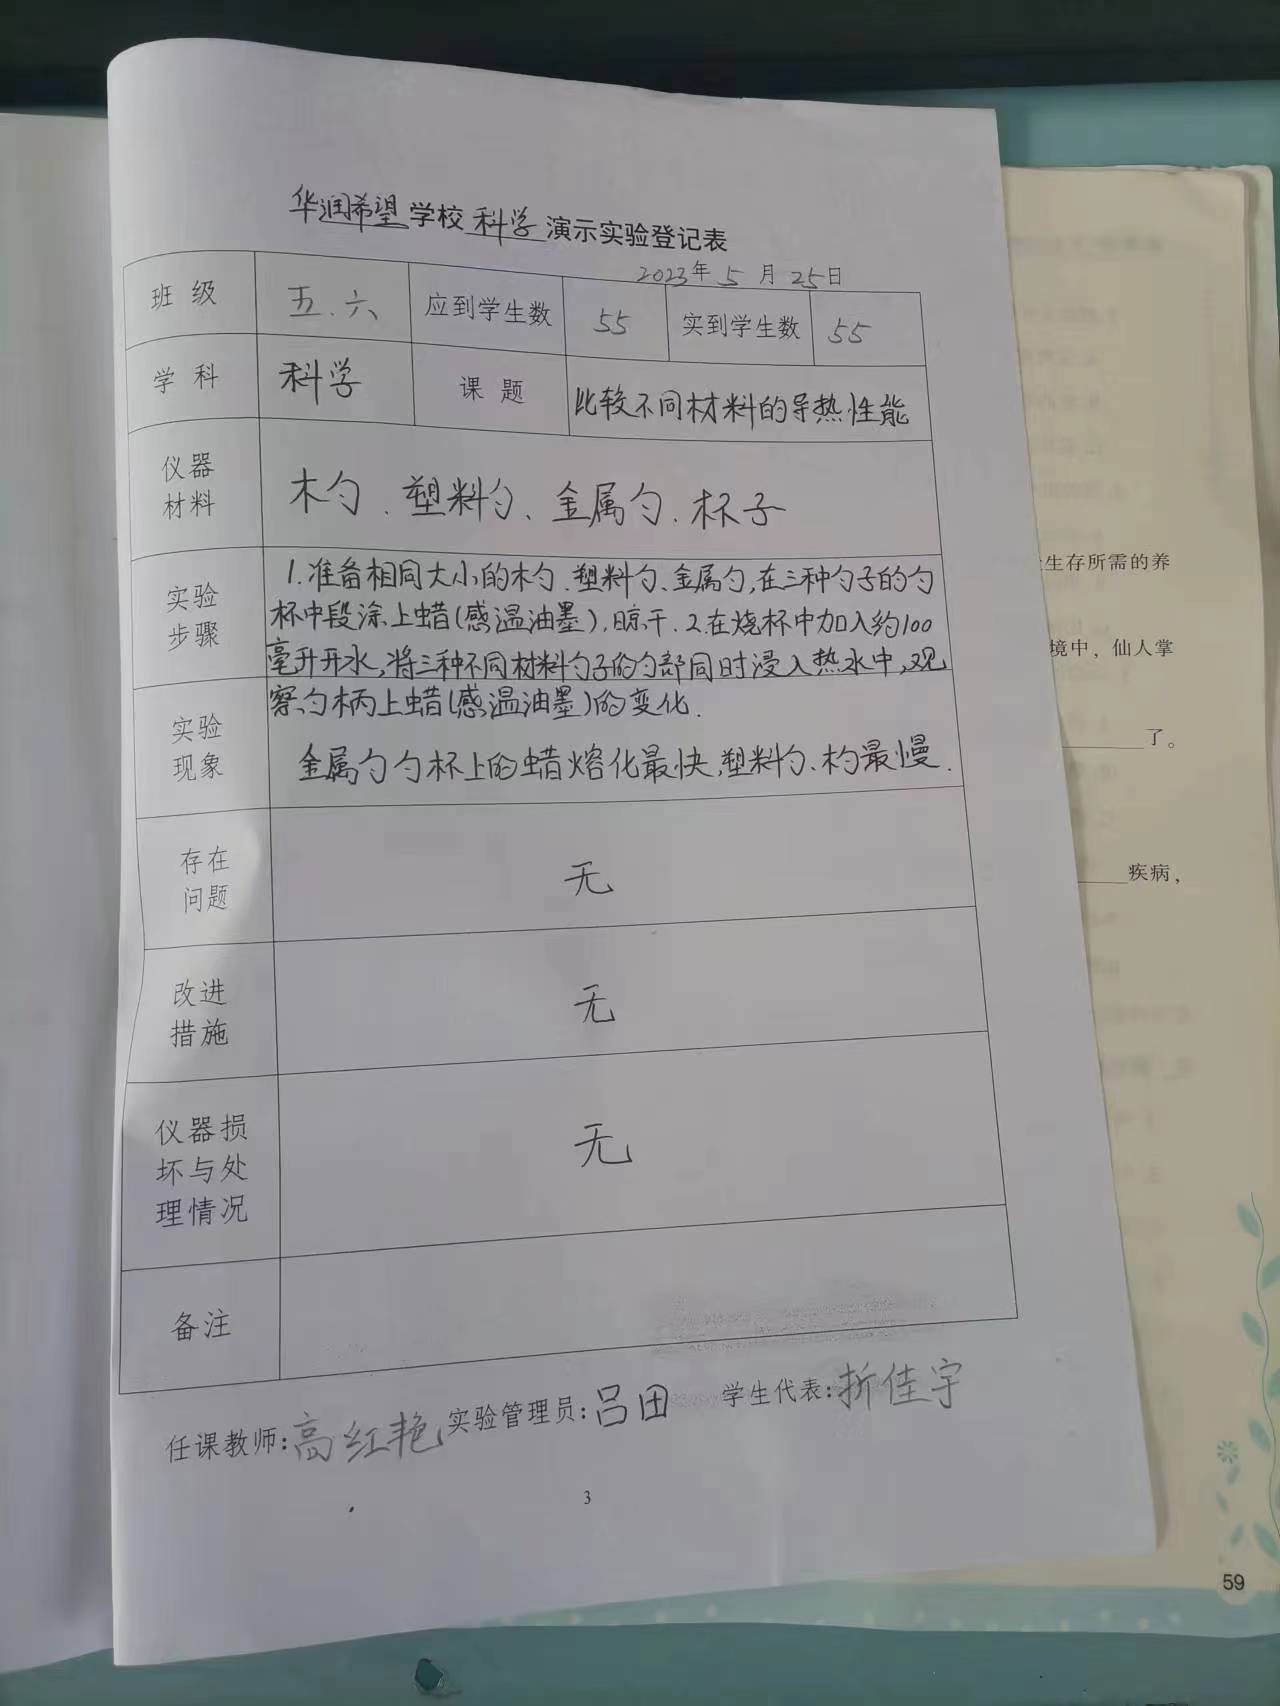 华润希望学校科学演示实验登记表
2023年5月25日
班级 五.六 应到学生数 55 实到学生数 55
学科 科学 课题 比较不同材料的导热性能
仪器
材料
木勺、塑料勺、金属勺、杯子
实验
步骤
1.准备相同大小的木勺、塑料勺、金属勺,在三种勺子的勺
杯中段涂上蜡(感温油墨),晾干.2.在烧杯中加入约100
毫升开水,将三种不同材料勺子的勺部同时浸入热水中,观
察勺柄上蜡(感温油墨)的变化.
实验
现象
金属勺勺杯上的蜡熔化最快,塑料勺、杓最慢.
存在
问题
无
改进
措施
无
仪器损
坏与处
理情况
无
备注
任课教师:高红艳 实验管理员:吕田 学生代表:折佳宇
3
生存所需的养
境中，仙人掌
了。
疾病，
59